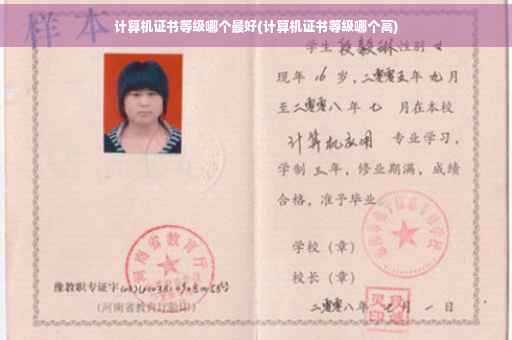 计算机证书等级哪个最好(计算机证书等级哪个高)
样本
学生 段毅琳 性别 女
现年 16 岁，二零零五年 九 月
至二零零八年 七 月在本校
计算机应用 专业学习，
学制 三 年，修业期满，成绩
合格，准予毕业。
学校（章）
校长（章）
二零零八年 七 月 一 日
河南省教育厅
豫教职专证字
(河南省教育厅验印)